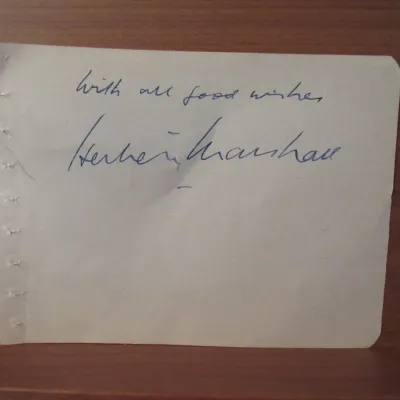 With all good wishes
Herbert Marshall